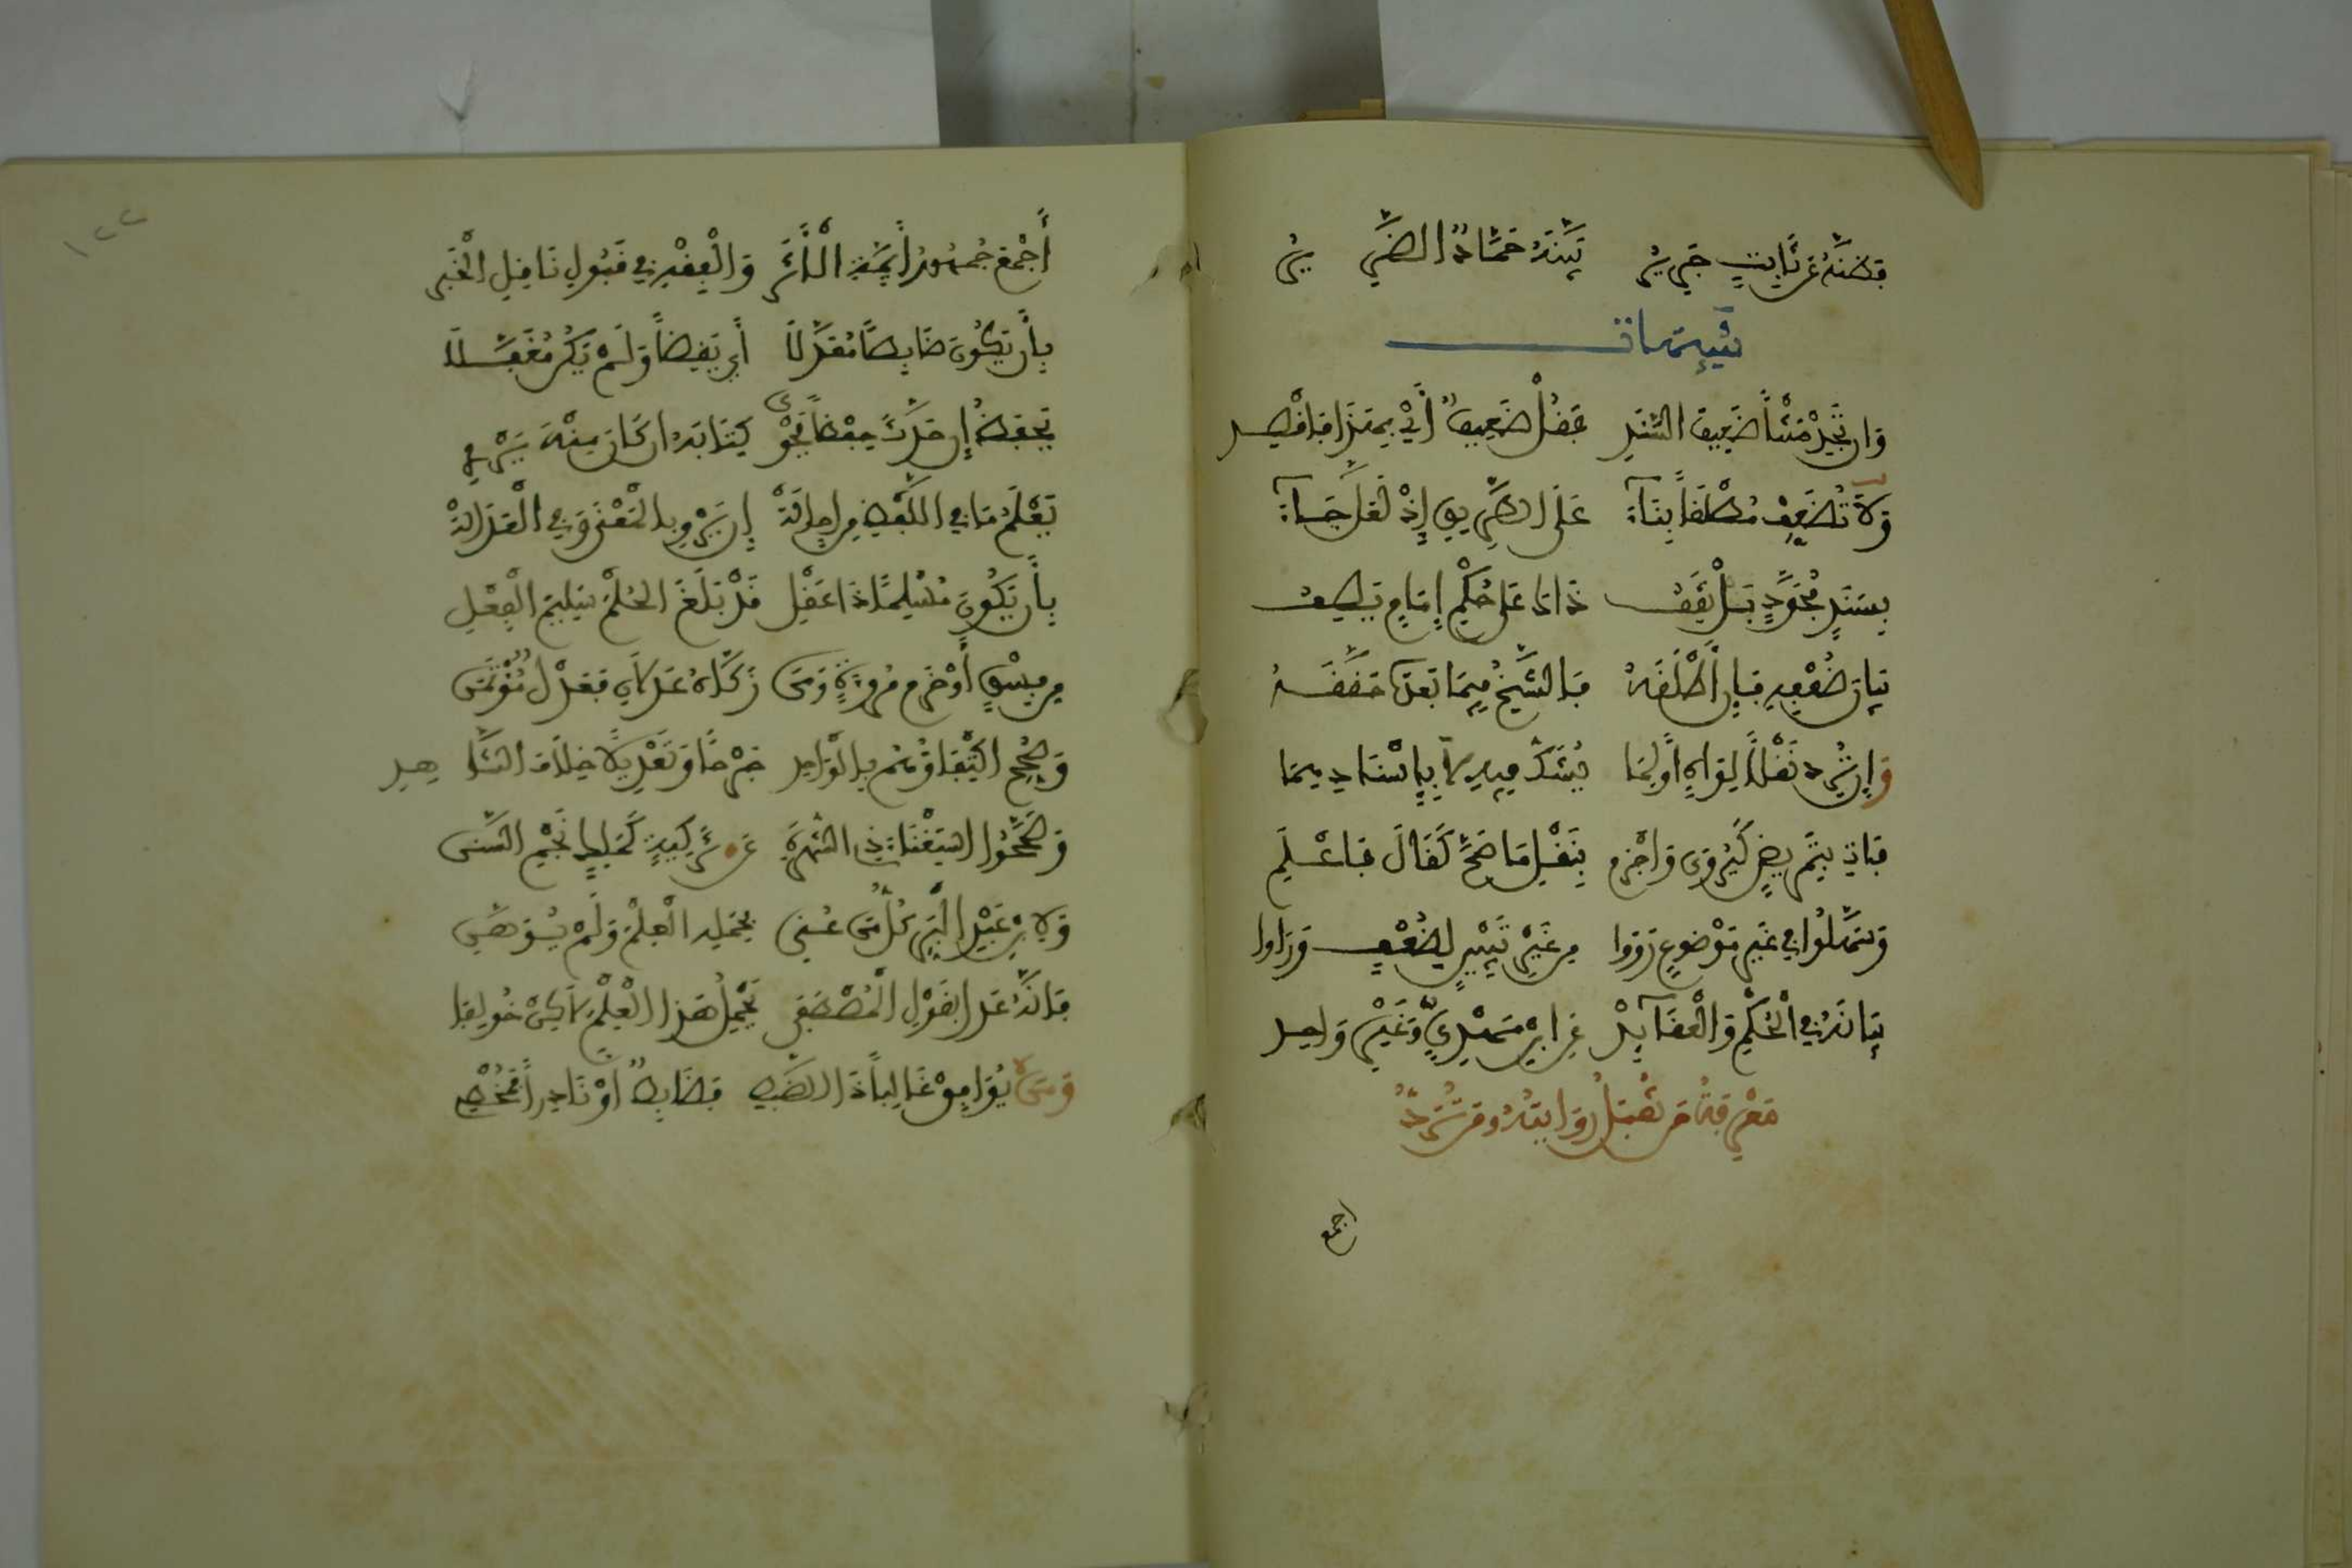 فظنه عن ثابت جرير بينه حماد الضرير
تنبيهات
وان تجد متنا ضعيف السند فقل ضعيف أي بهذا فاقصد
ولا تضعف مطلقا بناء على الطريق إذ لعل جاء
بسند مجود بل يقف ذاك على حكم إمام يصف
بيان ضعفه فإن أطلقه فالشيخ فيما بعد حققه
وإن ترد نقلا لواه أو لما يشك فيه لا بإسناديهما
فات بتمريض كيروى واجزم بنقل ما صح كقال فاعلم
وسهلوا في غير موضوع رووا من غير تبيين لضعف ورأوا
بيانه في الحكم والعقائد عن ابن مهدي وغير واحد
معرفة من تقبل روايته ومن ترد
اجمع
١٢٢
أجمع جمهور أئمة الأثر والفقه في قبول ناقل الخبر
بأن يكون ضابطا معدلا أي يقظا ولم يكن مغفلا
يحفظ إن حدث حفظا يحوى كتابه ان كان منه يروي
يعلم ما في اللفظ من إحالة إن يرو بالمعنى وفي العدالة
بأن يكون مسلما ذا عقل قد بلغ الحلم سليم الفعل
من فسق أو خرم مروءة ومن زكاه عدلان فعدل مؤتمن
وصحح اكتفاؤهم بالواحد جرحا وتعديلا خلاف الشاهد
وصححوا استغناء ذي الشهرة عن تزكية كمالك نجم السنن
ولابن عبد البر كل من عني بحمله العلم ولم يوهن
فإنه عدل بقول المصطفى يحمل هذا العلم لكن خولفا
ومن يوافق غالبا ذا الضبط فضابط أو نادرا فمخطي